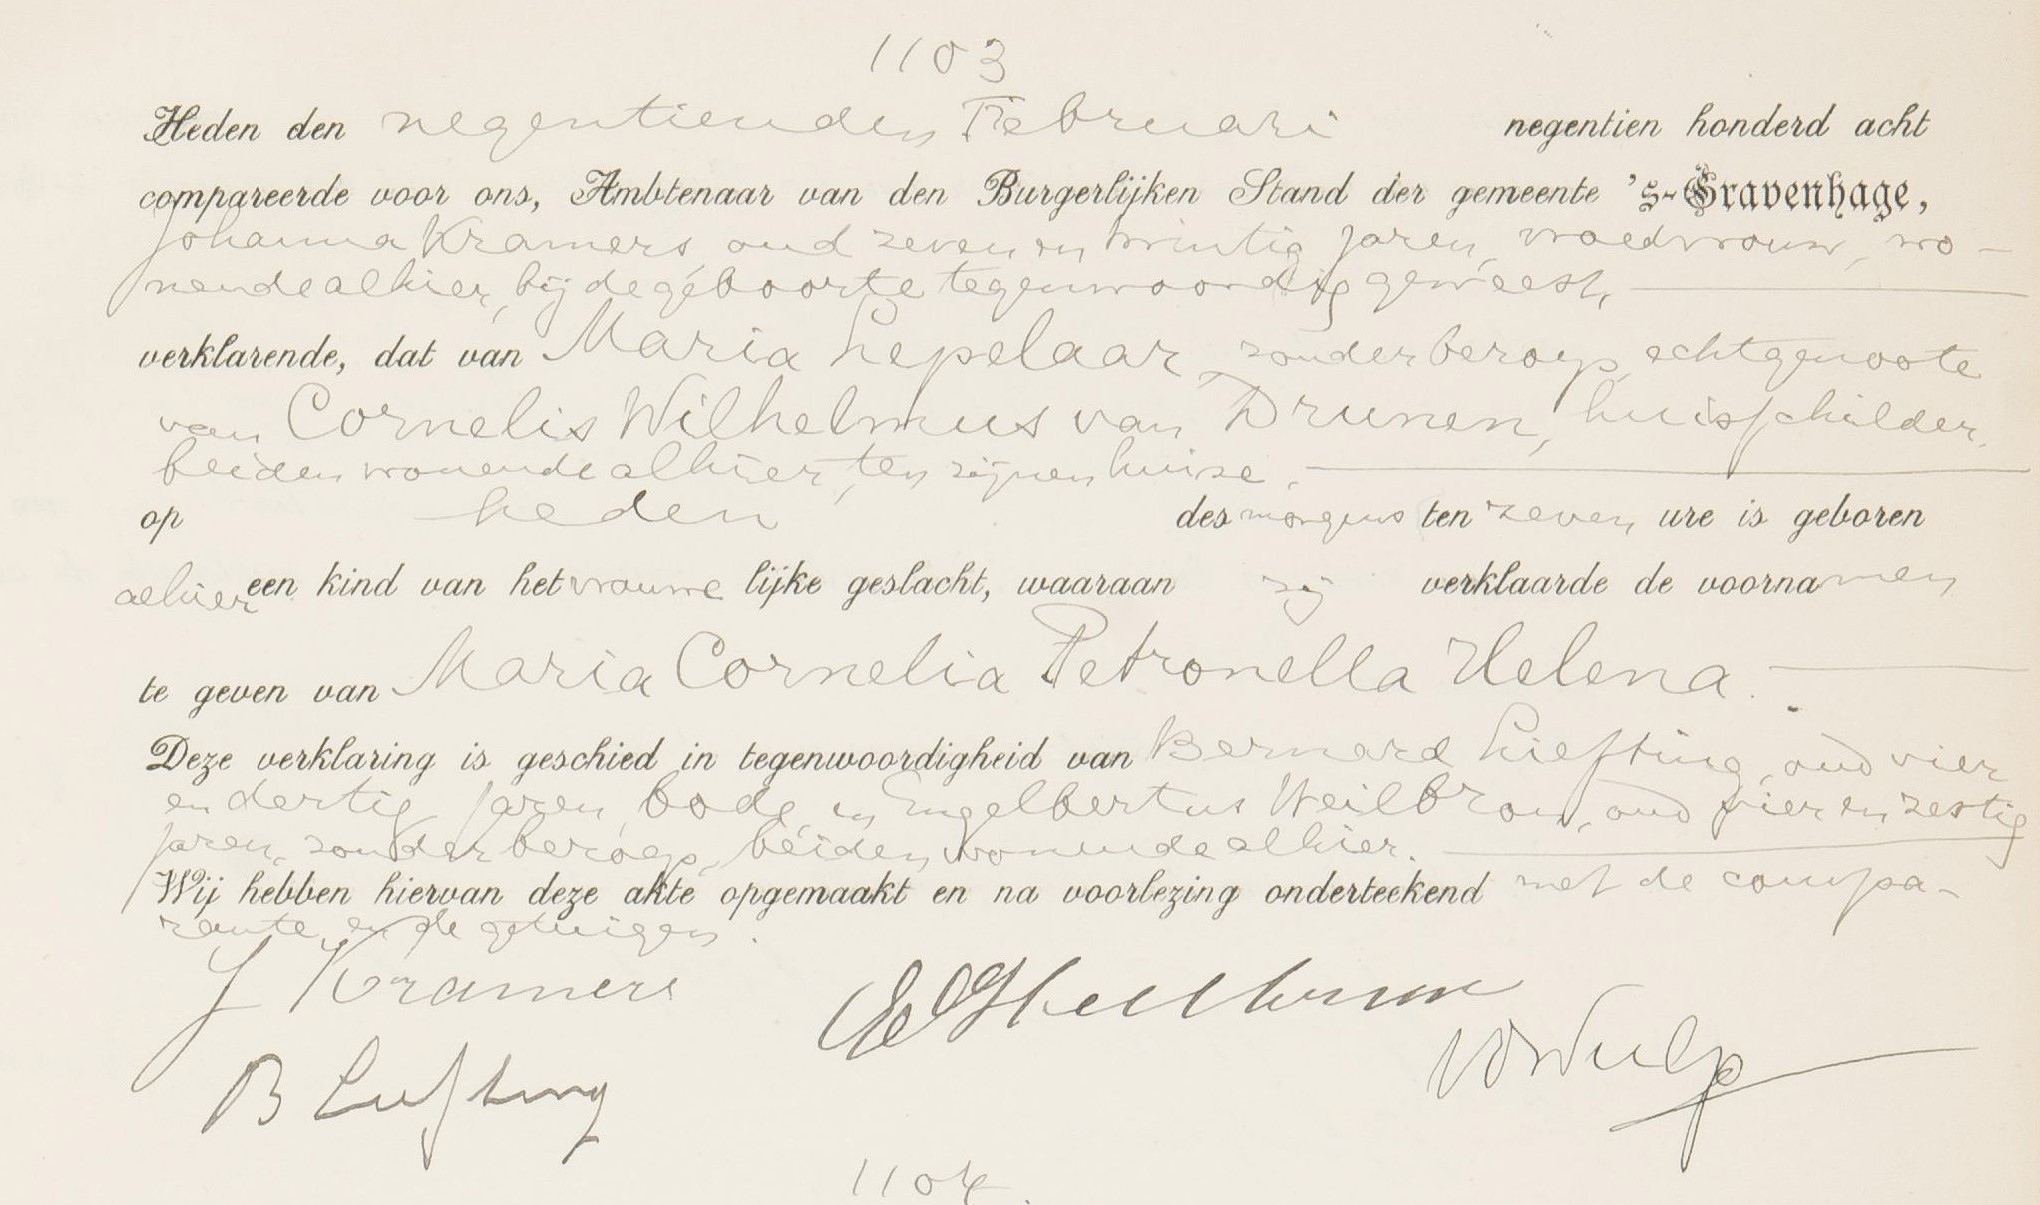 1103
Heden den negentienden Februari negentien honderd acht
compareerde voor ons, Ambtenaar van den Burgerlijken Stand der gemeente 's-Gravenhage,
Johanna Kramers, oud zeven en twintig jaren, vroedvrouw, wo-
nende alhier, bij de geboorte tegenwoordig geweest,
verklarende, dat van Maria Lepelaar, zonder beroep, echtgenoote
van Cornelis Wilhelmus van Drunen, huisschilder,
beiden wonende alhier, ten zijnen huize,
op heden des morgens ten zeven ure is geboren
alhier een kind van het vrouwelijke geslacht, waaraan zij verklaarde de voornamen
te geven van Maria Cornelia Petronella Helena.
Deze verklaring is geschied in tegenwoordigheid van Bernard Liefting, oud vier
en dertig jaren, bode, en Engelbertus Weilbron, oud vier en zestig
jaren, zonder beroep, beiden wonende alhier.
Wij hebben hiervan deze akte opgemaakt en na voorlezing onderteekend met de compa-
rante en de getuigen.
J Kramers
B Liefting
vd Wulp
1104.